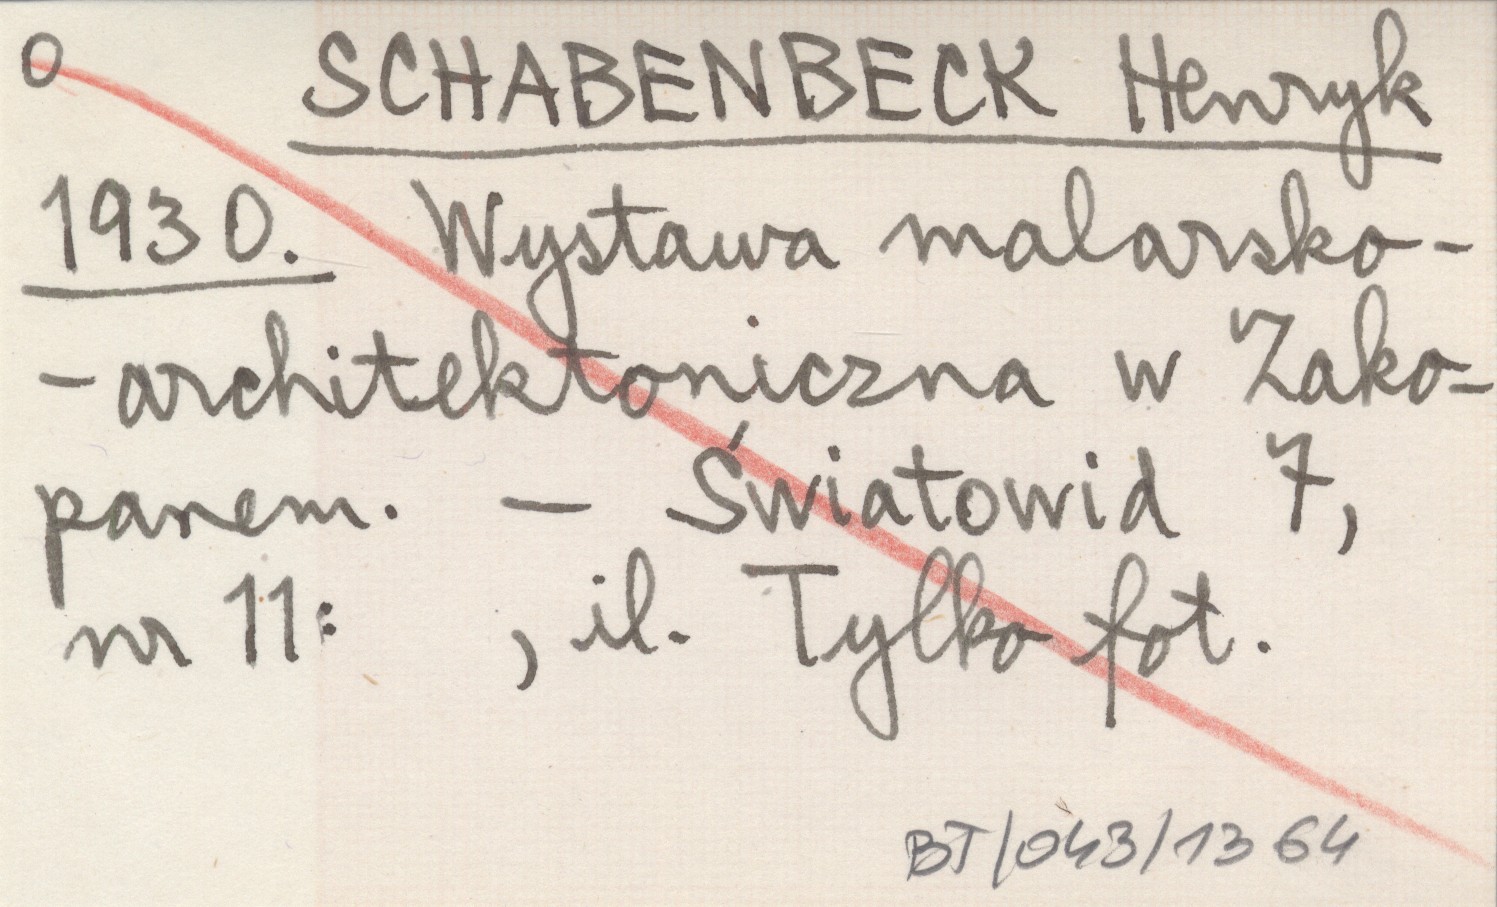 O SCHABENBECK Henryk
1930. Wystawa malarsko-
-architektoniczna w Zako-
panem. — Światowid 7,
nr 11: , il. Tylko fot.
BT/043/1364